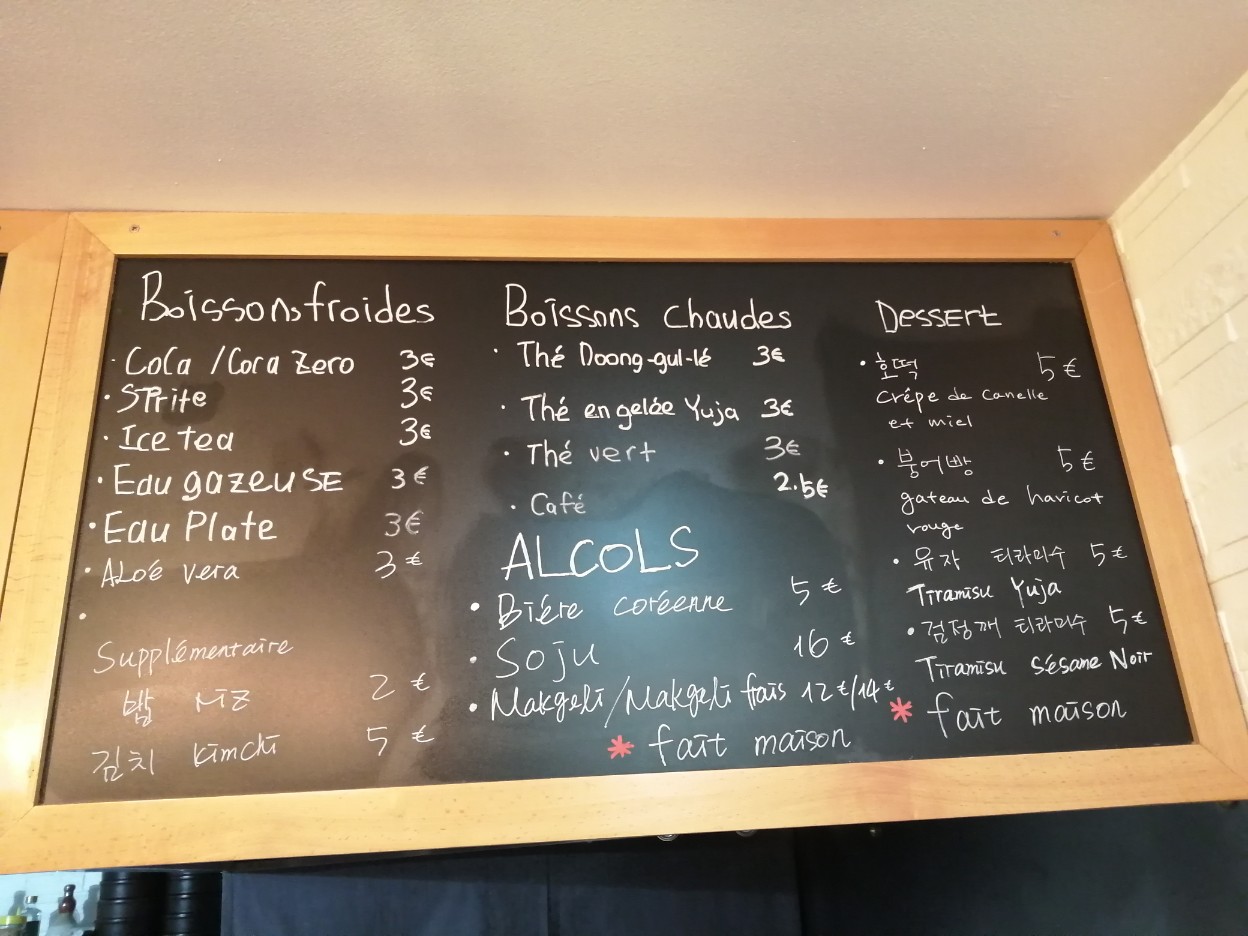 Boissons froides
· CoCa / Cora Zero 3€
· SPrite 3€
· Ice tea 3€
· Eau gazeuSE 3€
· Eau Plate 3€
· ALoé vera 3€
·
Supplémentaire
밥 riz 2€
김치 kimchi 5€
Boissons chaudes
· Thé Doong-gul-lé 3€
· Thé en gelée Yuja 3€
· Thé vert 3€
· Café 2.5€
ALCOLS
· Biére coréenne 5€
· Soju 16€
· Makgeli/Makgeli frais 12€/14€
* fait maison
DESSERT
· 호떡 5€
crêpe de canelle
et miel
· 붕어빵 5€
gateau de haricot
rouge
· 유자 티라미수 5€
Tiramisu Yuja
· 검정깨 티라미수 5€
Tiramisu Sésame Noir
* fait maison